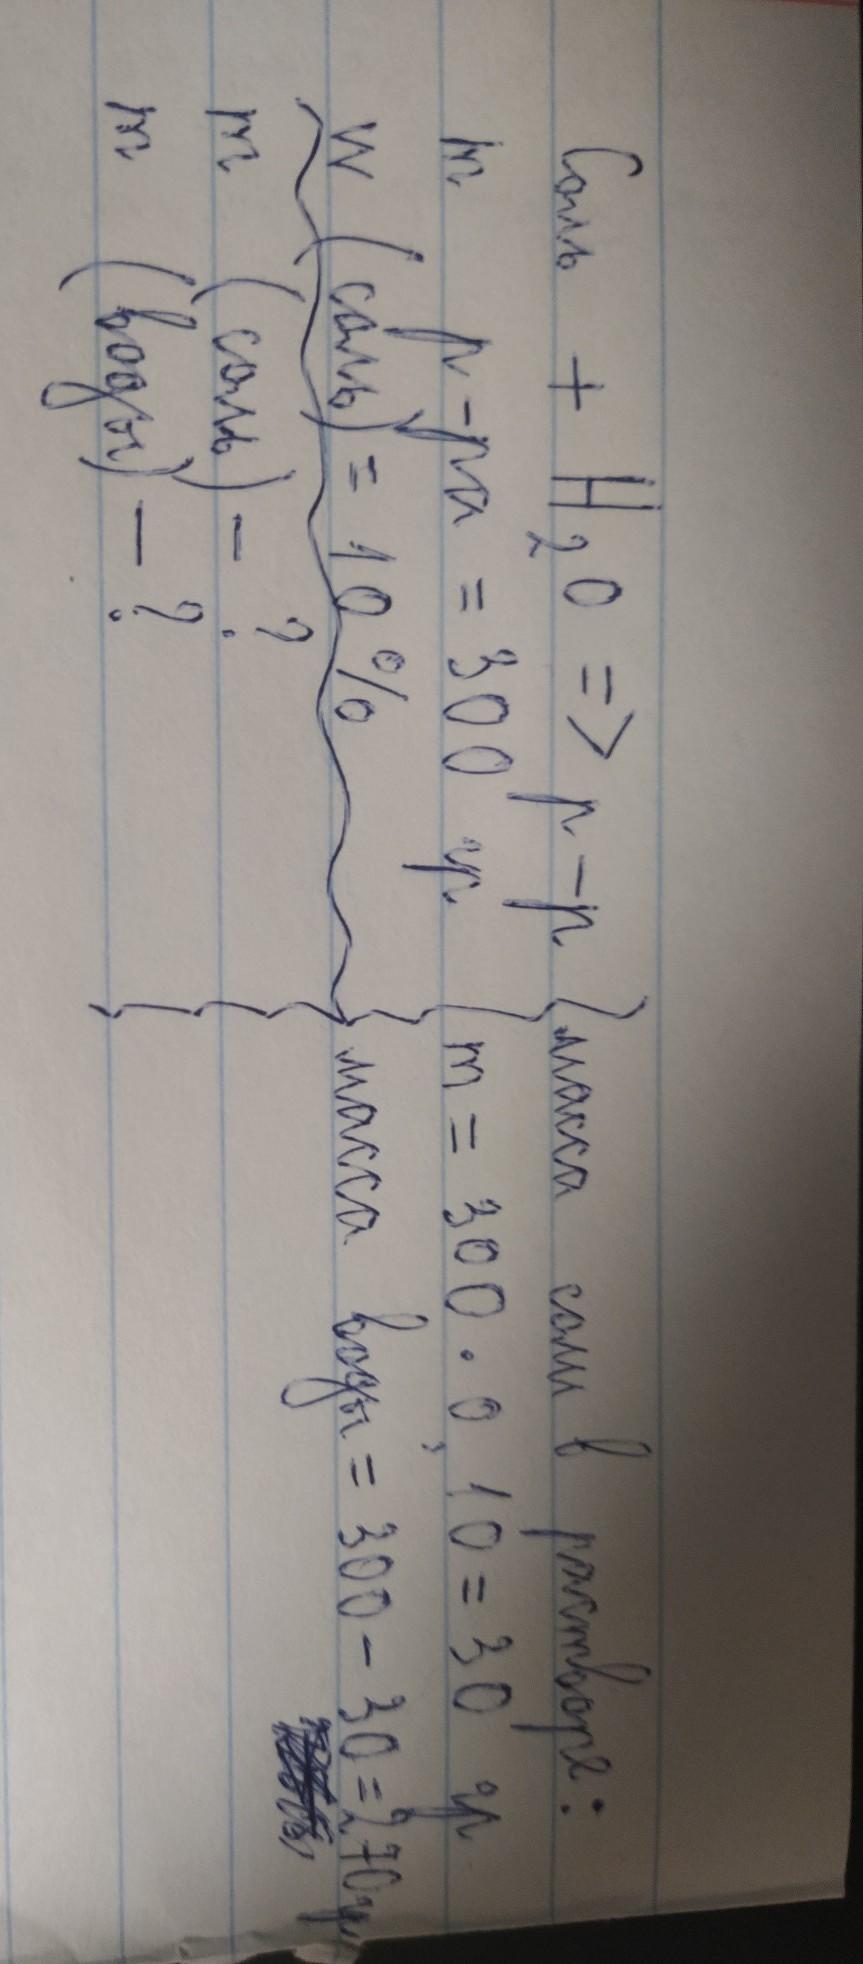 Соль + H₂O => р-р
m р-ра = 300 гр
w (соль) = 10%
m (соль) - ?
m (воды) - ?
масса соли в растворе:
m = 300 · 0,10 = 30 гр
масса воды = 300 - 30 = 270 гр